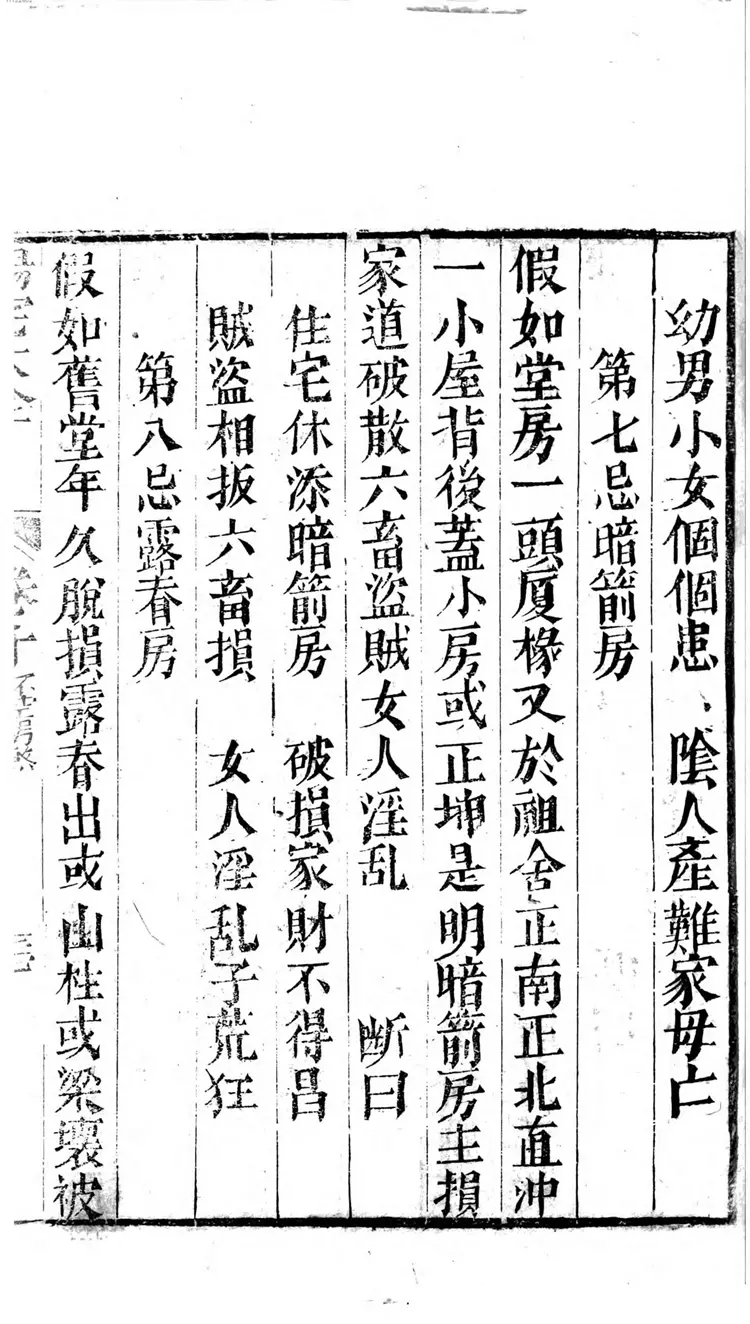 幼男小女個個患、陰人產難家母亡
第七忌暗箭房
假如堂房一頭厦椽又於祖舍正南正北直沖
一小屋背後蓋小房或正坤是明暗箭房主損
家道破散六畜盜賊女人淫乱 断曰
住宅休添暗箭房 破損家財不得昌
賊盜相扳六畜損 女人淫乱子荒狂
第八忌露脊房
假如舊堂年久脫損露脊出或山柱或梁壞被